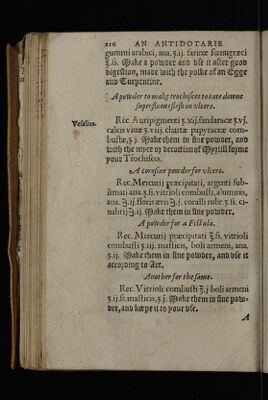 216 AN ANTIDOTARIE
gummi arabici, ana. ʒ.ij. farinæ fœnugræci
ʒ.ß. Make a powder and vse it after good
digestion, made with the yolke of an Egge
and Turpentine.
A powder to make trochisces to eate downe
superfluous flesh in vlcers.
Vesalius.
Rec. Auripigmenti ʒ.xij. sandaracæ ʒ.vj.
calcis viuæ ʒ.viij. chartæ papyraceæ com-
bustæ, ʒ.j. Make them in fine powder, and
with the iuyce or decoction of Myrtill forme
your Trochisces.
A corosiue powder for vlcers.
Rec. Mercurij præcipitati, argenti subli-
mati ana. ʒ.ß. vitrioli combusti, aluminis,
ana. ℥.ij. floris æris ℥.j. coralli rubr. ʒ.ß. ci-
nabrij ℥.ij. Make them in fine powder.
A powder for a Fistula.
Rec. Mercurij præcipitati ℥.ß. vitrioli
combusti ʒ.iij. masticis, boli armeni, ana.
ʒ.ij. Make them in fine powder, and vse it
according to Art.
Another for the same.
Rec. Vitrioli combusti ℥.j boli armeni
ʒ.ij.ß. masticis, ʒ.j. Make them in fine pow-
der, and keepe it to your vse.
A